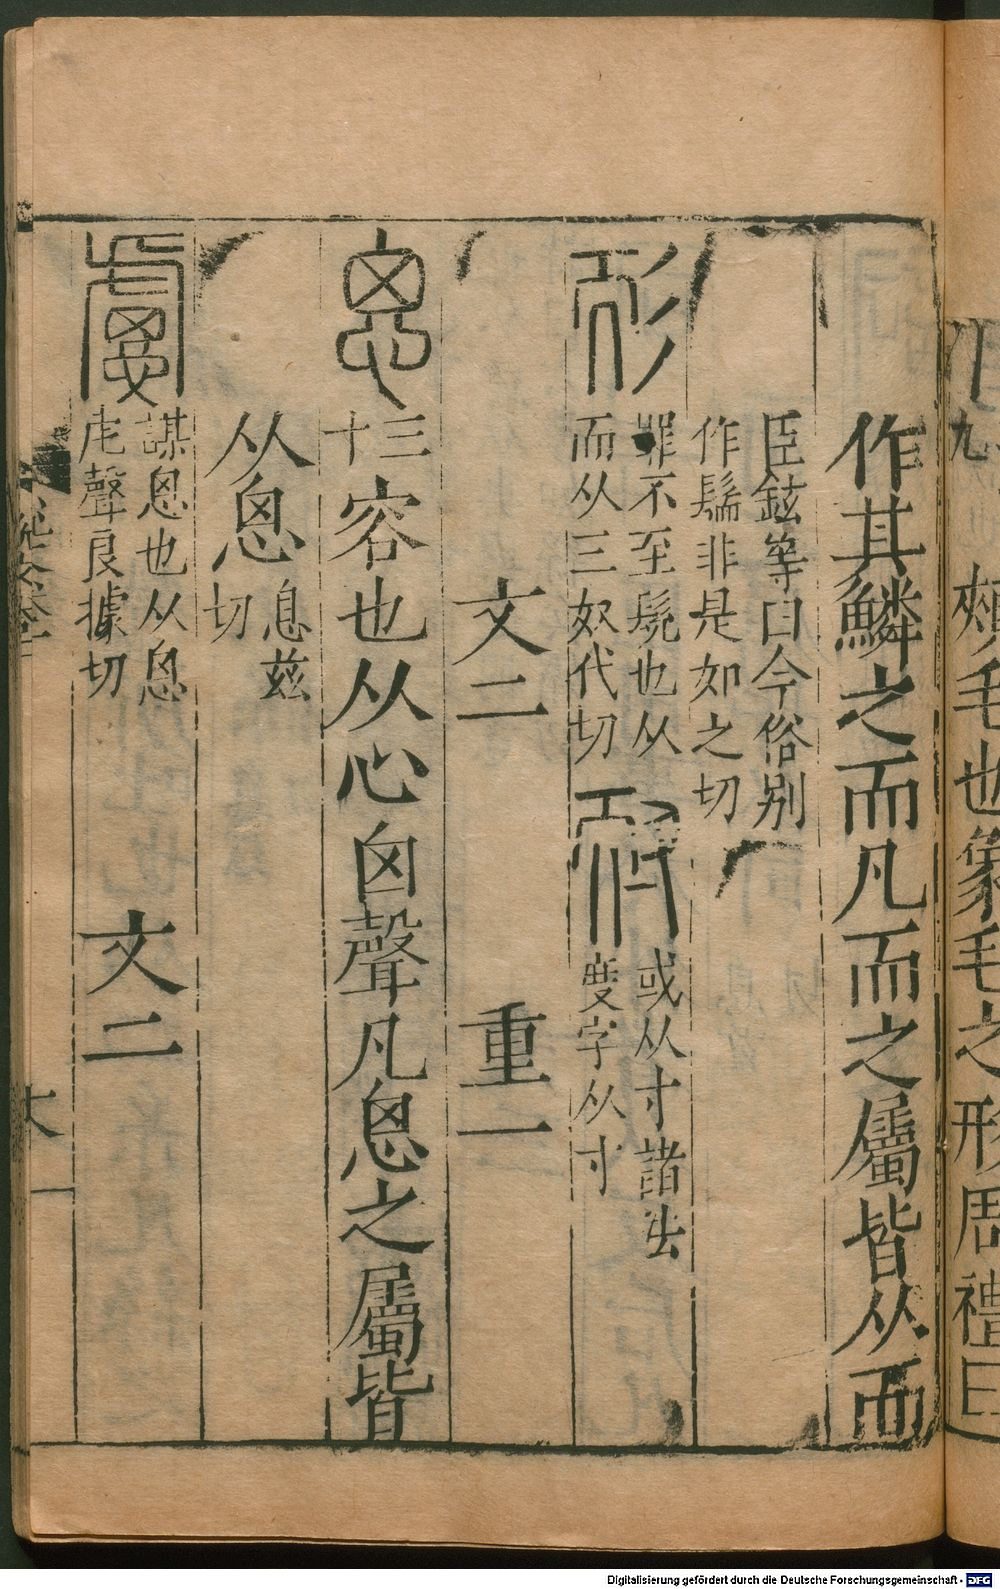 頰毛也象毛之形周禮曰
作其鱗之而凡而之屬皆从而
臣鉉等曰今俗别
作髵非是如之切
耏
罪不至髡也从
而从三奴代切
耐
或从寸諸法
度字从寸
文二　重一
恖
十三容也从心囟聲凡恖之屬皆
从恖
息兹
切
慮
謀恖也从恖
虍聲良據切
文二
Digitalisierung gefördert durch die Deutsche Forschungsgemeinschaft - DFG